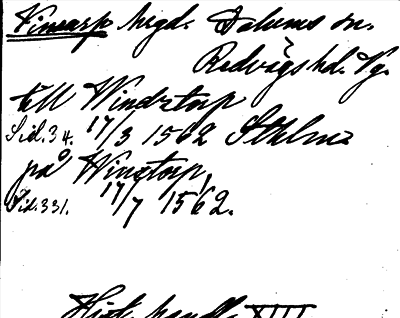 Vinsarp hgd. Dalums sn.
Redvägs hd. Vg.
till Windztorp
Sid. 34. 17/3 1562 Sthlm
på Winstorp,
Sid. 331. 17/7 1562.
Hist. handl. XIII